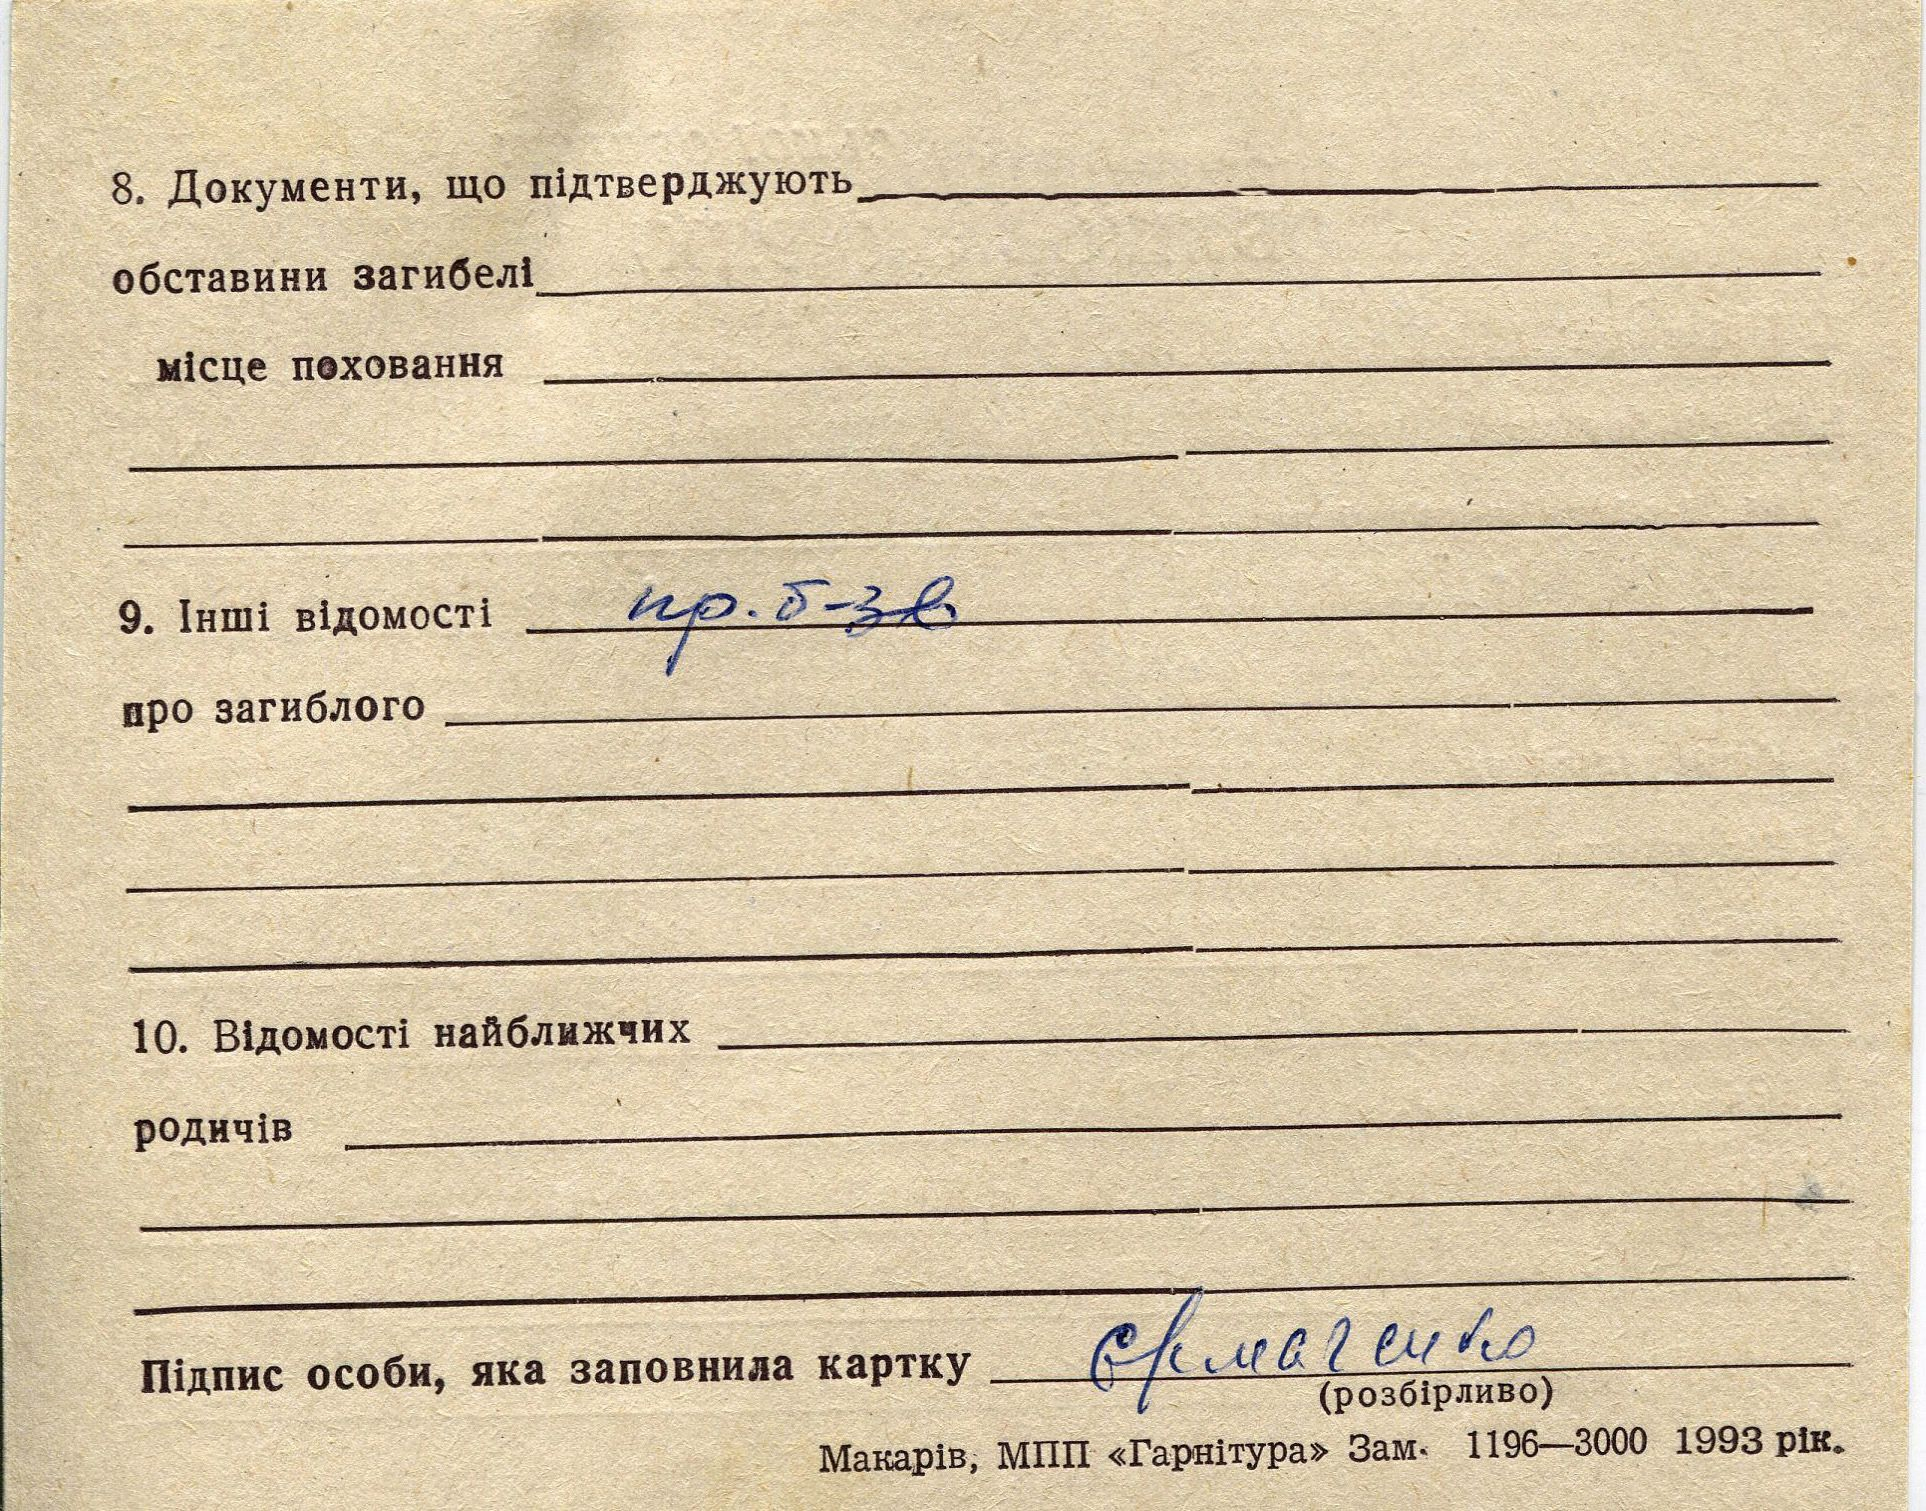 8. Документи, що підтверджують
обставини загибелі
місце поховання
9. Інші відомості пр. б-зв
про загиблого
10. Відомості найближчих
родичів
Підпис особи, яка заповнила картку
(розбірливо)
Макарів, МПП «Гарнітура» Зам. 1196—3000 1993 рік.